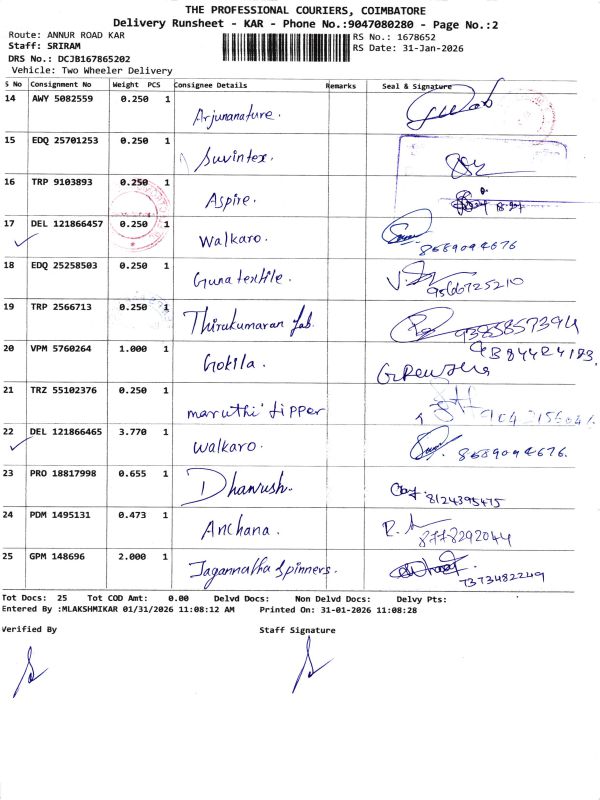 THE PROFESSIONAL COURIERS, COIMBATORE
Delivery Runsheet - KAR - Phone No.:9047080280 - Page No.:2
Route: ANNUR ROAD KAR
Staff: SRIRAM
DRS No.: DCJB167865202
Vehicle: Two Wheeler Delivery
RS No.: 1678652
RS Date: 31-Jan-2026
S No Consignment No Weight PCS Consignee Details Remarks Seal & Signature
14 AWY 5082559 0.250 1 Arjunanature.
15 EDQ 25701253 0.250 1 Suvintex.
16 TRP 9103893 0.250 1 Aspire.
17 DEL 121866457 0.250 1 Walkaro. 8689094676
18 EDQ 25258503 0.250 1 Guna textile. 9566725210
19 TRP 2566713 0.250 1 Thirukumaran fab. 9385857394
20 VPM 5760264 1.000 1 Gokila.
21 TRZ 55102376 0.250 1 maruthi zipper
22 DEL 121866465 3.770 1 Walkaro. 8689094676.
23 PRO 18817998 0.655 1 Dhanush. 8124395475
24 PDM 1495131 0.473 1 Anchana. 8778292044
25 GPM 148696 2.000 1 Jagannatha Spinners. 7373482249
Tot Docs: 25 Tot COD Amt: 0.00 Delvd Docs: Non Delvd Docs: Delvy Pts:
Entered By :MLAKSHMIKAR 01/31/2026 11:08:12 AM Printed On: 31-01-2026 11:08:28
Verified By Staff Signature